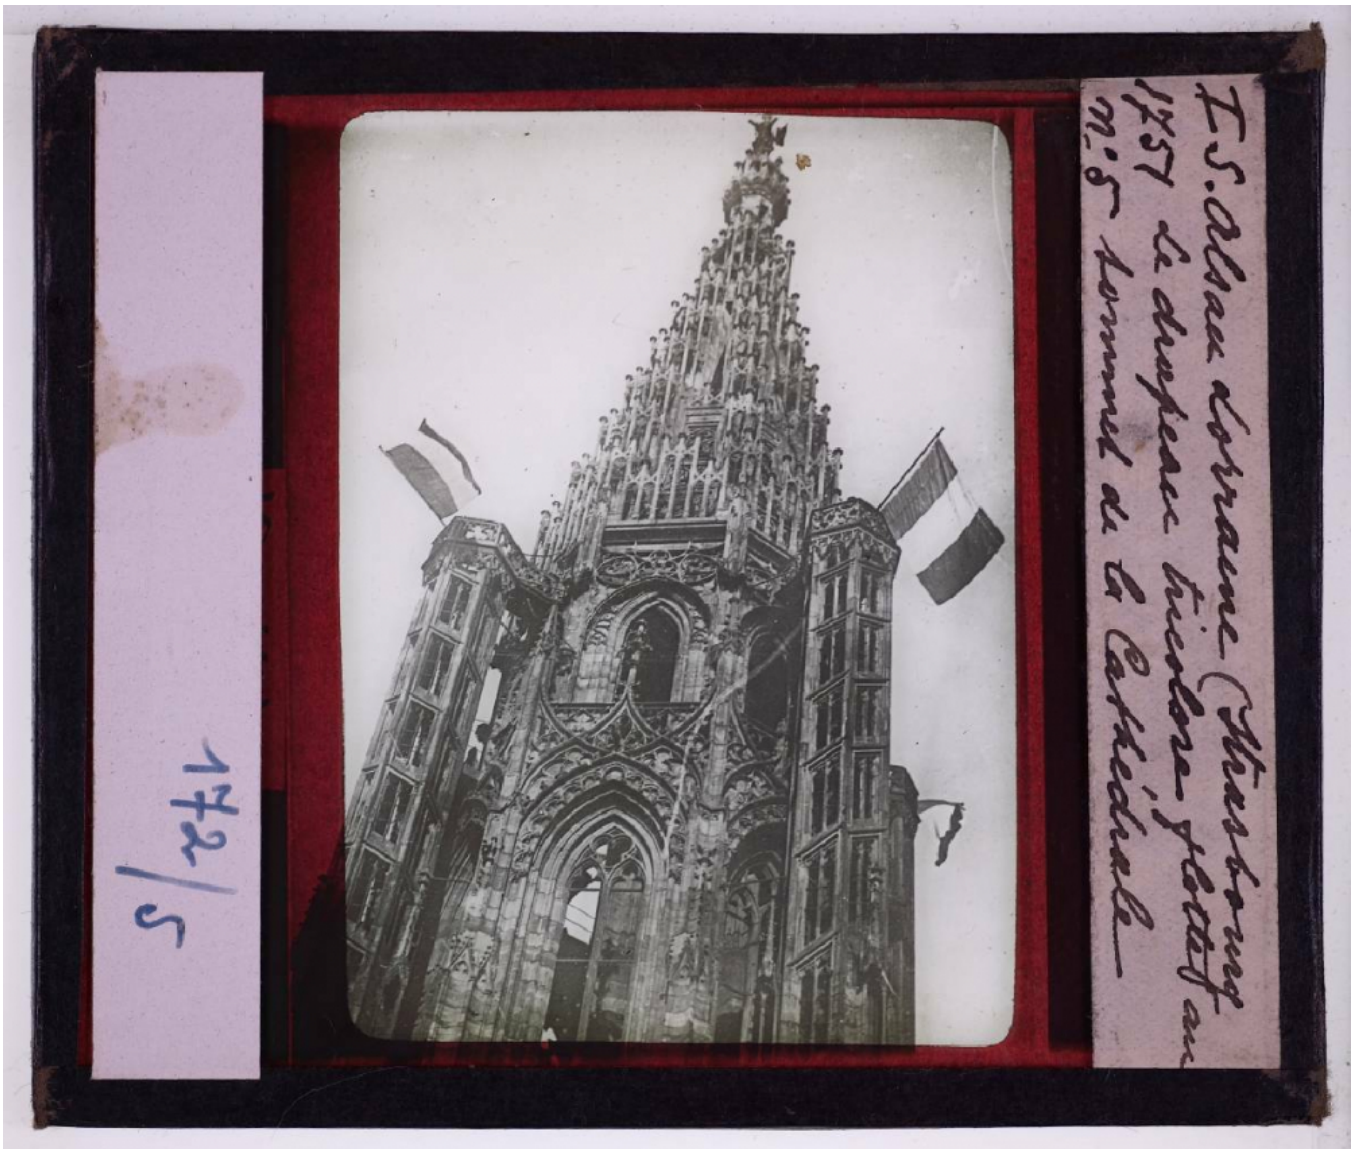 I. S. Alsace Lorraine (Strasbourg
1757 Le drapeau tricolore flotte au
N° 5 sommet de la Cathédrale
172/5